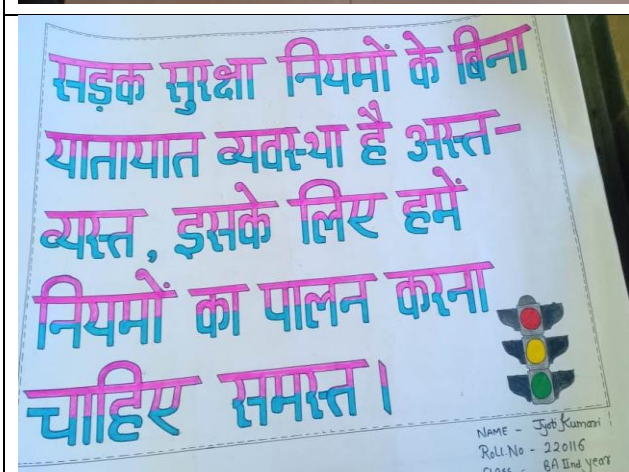 सड़क सुरक्षा नियमों के बिना
यातायात व्यवस्था है अस्त-
व्यस्त, इसके लिए हमें
नियमों का पालन करना
चाहिए समस्त।
NAME - Jyoti Kumari
Roll No - 220116
CLASS - BA IInd year